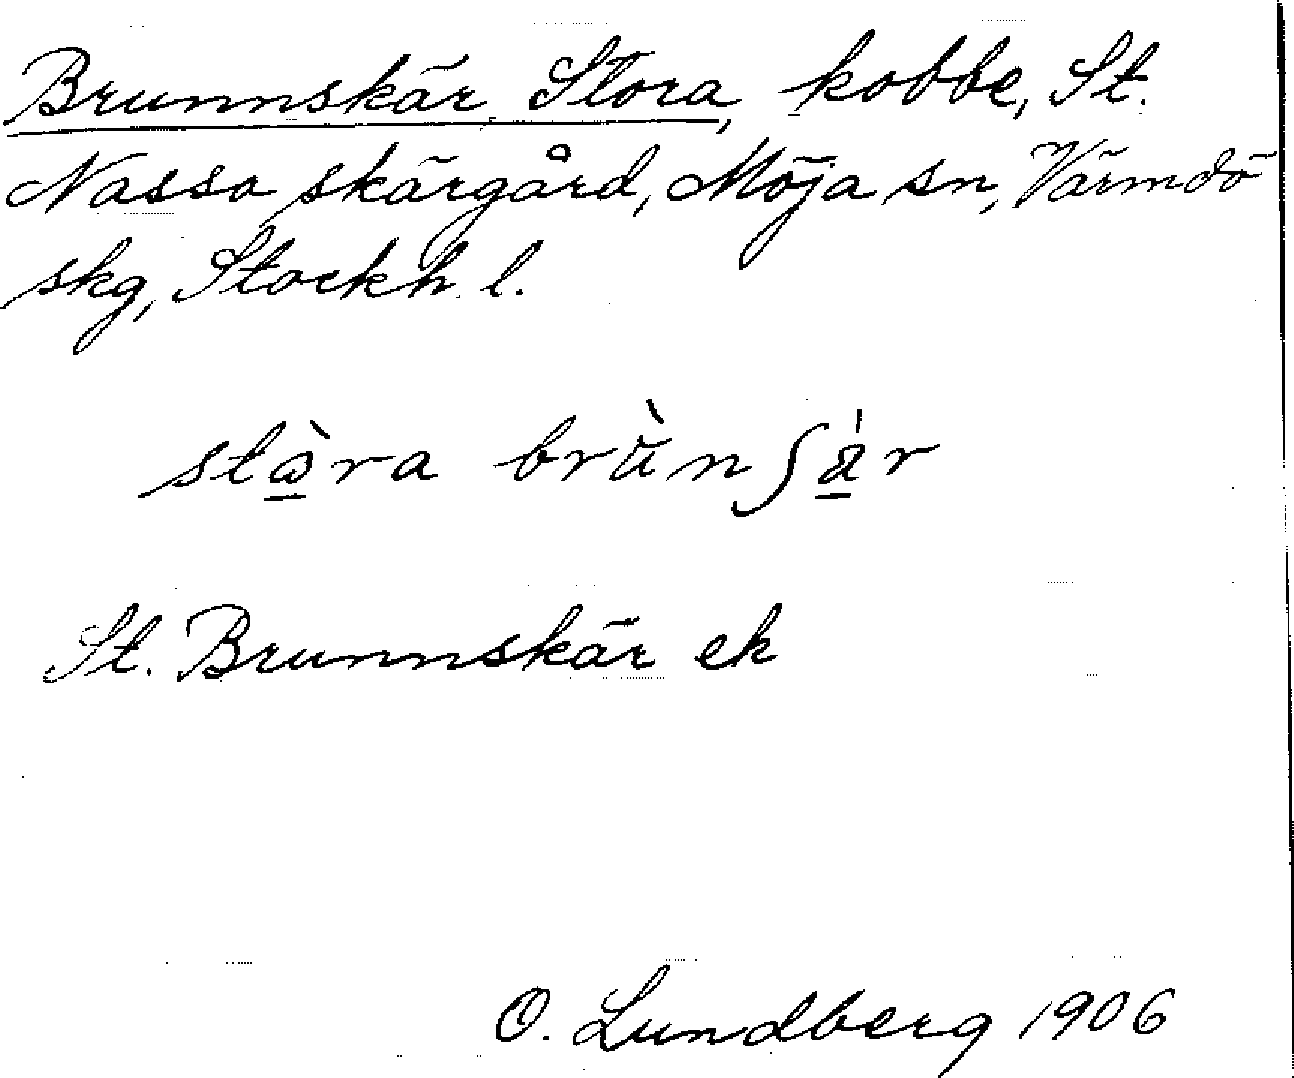 Brunnskär, Stora, kobbe, St.
Nassa skärgård, Möja sn, Värmdö
skg, Stockh. l.
stὼ̲ra brùnʃä̲́r
St. Brunnskär ek
O. Lundberg 1906